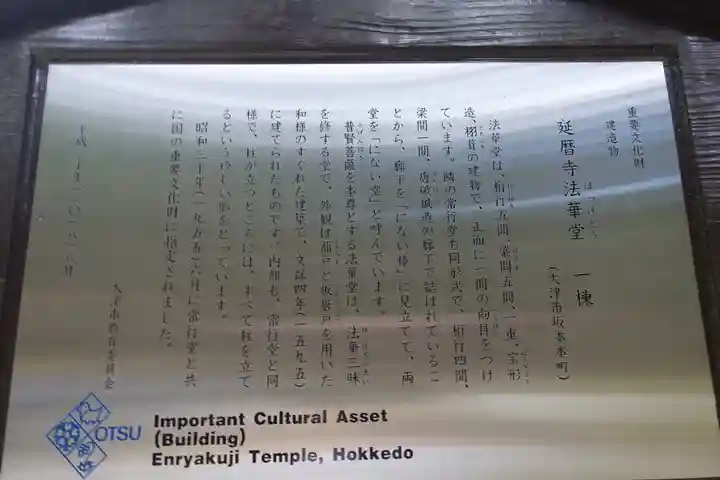 重要文化財
建造物
延暦寺法華堂 一棟
ほっけどう
(大津市坂本本町)
法華堂は、桁行五間、梁間五間、一重、宝形
造、栩葺の建物で、正面に一間の向拝をつけ
ています。隣の常行堂も同形式で、桁行四間、
梁間一間、唐破風造の廊下で結ばれているこ
とから、廊下を「にない棒」に見立てて、両
堂を「にない堂」と呼んでいます。
普賢菩薩を本尊とする法華堂は、法華三昧
を修する堂で、外観は蔀戸と板唐戸を用いた
和様のすぐれた建築で、文禄四年(一五九五)
に建てられたものです。内部も、常行堂と同
様で、柱が立つところには、すべて柱を立て
るという珍しい形をとっています。
昭和三十年(一九五五)六月に常行堂と共
に国の重要文化財に指定されました。
大津市教育委員会
OTSU
Important Cultural Asset
(Building)
Enryakuji Temple, Hokkedo